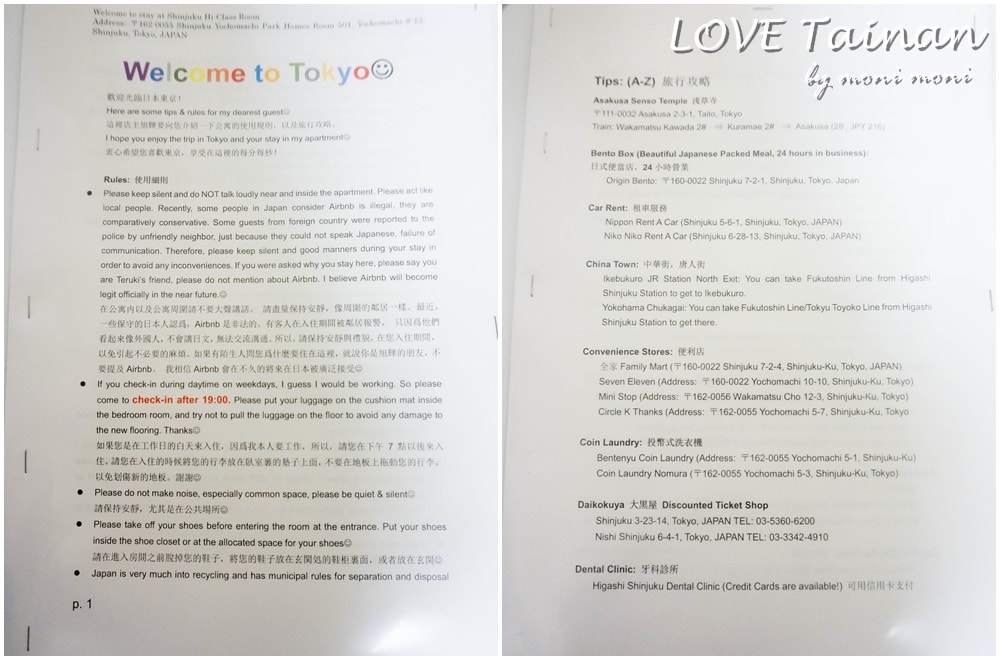 Welcome to stay at Shinjuku Hi-Class Room
Address: 〒162-0055 Shinjuku Yochomachi Park Homes Room 501, Yochomachi 8-13,
Shinjuku, Tokyo, JAPAN
Welcome to Tokyo☺
歡迎光臨日本東京!
Here are some tips & rules for my dearest guest☺
這裡店主旭輝要向您介紹一下公寓的使用規則，以及旅行攻略。
I hope you enjoy the trip in Tokyo and your stay in my apartment☺
衷心希望您喜歡東京，享受在這裡的每分每秒!
Rules: 使用細則
● Please keep silent and do NOT talk loudly near and inside the apartment. Please act like
local people. Recently, some people in Japan consider Airbnb is illegal, they are
comparatively conservative. Some guests from foreign country were reported to the
police by unfriendly neighbor, just because they could not speak Japanese, failure of
communication. Therefore, please keep silent and good manners during your stay in
order to avoid any inconveniences. If you were asked why you stay here, please say you
are Teruki's friend, please do not mention about Airbnb. I believe Airbnb will become
legit officially in the near future.☺
在公寓内以及公寓周圍請不要大聲講話。 請盡量保持安靜，像周圍的鄰居一樣。最近，
一些保守的日本人認爲，Airbnb 是非法的。有客人在入住期間被鄰居報警， 只因爲他們
看起來像外國人，不會講日文，無法交流溝通。所以，請保持安靜與禮貌，在您入住期間，
以免引起不必要的麻煩。如果有陌生人問您爲什麼要住在這裡，就說你是旭輝的朋友，不
要提及 Airbnb。 我相信 Airbnb 會在不久的將來在日本被廣泛接受☺
● If you check-in during daytime on weekdays, I guess I would be working. So please
come to check-in after 19:00. Please put your luggage on the cushion mat inside
the bedroom room, and try not to pull the luggage on the floor to avoid any damage to
the new flooring. Thanks☺
如果您是在工作日的白天來入住，因爲我本人要工作，所以，請您在下午 7 點以後來入
住。請您在入住的時候將您的行李放在臥室裏的墊子上面，不要在地板上拖動您的行李，
以免划傷新的地板。謝謝☺
● Please do not make noise, especially common space, please be quiet & silent☺
請保持安靜，尤其是在公共場所☺
● Please take off your shoes before entering the room at the entrance. Put your shoes
inside the shoe closet or at the allocated space for your shoes☺
請在進入房間之前脫掉您的鞋子，將您的鞋子放在玄関処的鞋柜裏面，或者放在玄関☺
● Japan is very much into recycling and has municipal rules for separation and disposal
p. 1
LOVE Tainan
by moni moni
Tips: (A-Z) 旅行攻略
Asakusa Senso Temple 浅草寺
〒111-0032 Asakusa 2-3-1, Taito, Tokyo
Train: Wakamatsu Kawada 2# ⇨ Kuramae 2# ⇨ Asakusa (28', JPY 216)
Bento Box (Beautiful Japanese Packed Meal, 24 hours in business):
日式便當店，24 小時營業
Origin Bento: 〒160-0022 Shinjuku 7-2-1, Shinjuku, Tokyo, Japan
Car Rent: 租車服務
Nippon Rent A Car (Shinjuku 5-6-1, Shinjuku, Tokyo, JAPAN)
Niko Niko Rent A Car (Shinjuku 6-28-13, Shinjuku, Tokyo, JAPAN)
China Town: 中華街，唐人街
Ikebukuro JR Station North Exit: You can take Fukutoshin Line from Higashi
Shinjuku Station to get to Ikebukuro.
Yokohama Chukagai: You can take Fukutoshin Line/Tokyu Toyoko Line from Higashi
Shinjuku Station to get there.
Convenience Stores: 便利店
全家 Family Mart (〒160-0022 Shinjuku 7-2-4, Shinjuku-Ku, Tokyo, JAPAN)
Seven Eleven (Address: 〒160-0022 Yochomachi 10-10, Shinjuku-Ku, Tokyo)
Mini Stop (Address: 〒162-0056 Wakamatsu Cho 12-3, Shinjuku-Ku, Tokyo)
Circle K Thanks (Address: 〒162-0055 Yochomachi 5-7, Shinjuku-Ku, Tokyo
Coin Laundry: 投幣式洗衣機
Bentenyu Coin Laundry (Address: 〒162-0055 Yochomachi 5-1, Shinjuku-Ku)
Coin Laundry Nomura (〒162-0055 Yochomachi 5-3, Shinjuku-Ku, Tokyo)
Daikokuya 大黒屋 Discounted Ticket Shop
Shinjuku 3-23-14, Tokyo, JAPAN TEL: 03-5360-6200
Nishi Shinjuku 6-4-1, Tokyo, JAPAN TEL: 03-3342-4910
Dental Clinic: 牙科診所
Higashi Shinjuku Dental Clinic (Credit Cards are available!) 可用信用卡支付